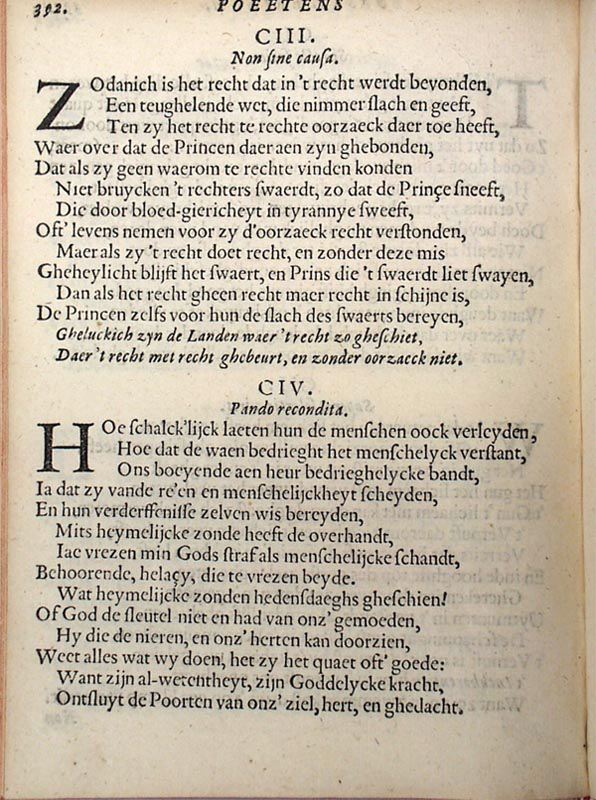 392. POEETENS
CIII.
Non ſine cauſa.
ZOdanich is het recht dat in 't recht werdt bevonden,
Een teughelende wet, die nimmer ſlach en geeft,
Ten zy het recht te rechte oorzaeck daer toe heeft,
Waer over dat de Princen daer aen zyn ghebonden,
Dat als zy geen waerom te rechte vinden konden
Niet bruycken 't rechters ſwaerdt, zo dat de Prinçe ſneeft,
Die door bloed-giericheyt in tyrannye ſweeft,
Oft' levens nemen voor zy d'oorzaeck recht verſtonden,
Maer als zy 't recht doet recht, en zonder deze mis
Gheheylicht blijft het ſwaert, en Prins die 't ſwaerdt liet ſwayen,
Dan als het recht gheen recht maer recht in ſchijne is,
De Princen zelfs voor hun de ſlach des ſwaerts bereyen,
Gheluckich zyn de Landen waer 't recht zo gheſchiet,
Daer 't recht met recht ghebeurt, en zonder oorzaeck niet.
CIV.
Pando recondita.
HOe ſchalck'lijck laeten hun de menſchen oock verleyden,
Hoe dat de waen bedrieght het menſchelyck verſtant,
Ons boeyende aen heur bedrieghelycke bandt,
Ia dat zy vande re'en en menſchelijckheyt ſcheyden,
En hun verderffeniſſe zelven wis bereyden,
Mits heymelijcke zonde heeft de overhandt,
Iae vrezen min Gods ſtraf als menſchelijcke ſchandt,
Behoorende, helaçy, die te vrezen beyde.
Wat heymelijcke zonden hedenſdaeghs gheſchien!
Of God de ſleutel niet en had van onz' gemoeden,
Hy die de nieren, en onz' herten kan doorzien,
Weet alles wat wy doen, het zy het quaet oft' goede:
Want zijn al-wetentheyt, zijn Goddelycke kracht,
Ontſluyt de Poorten van onz' ziel, hert, en ghedacht.